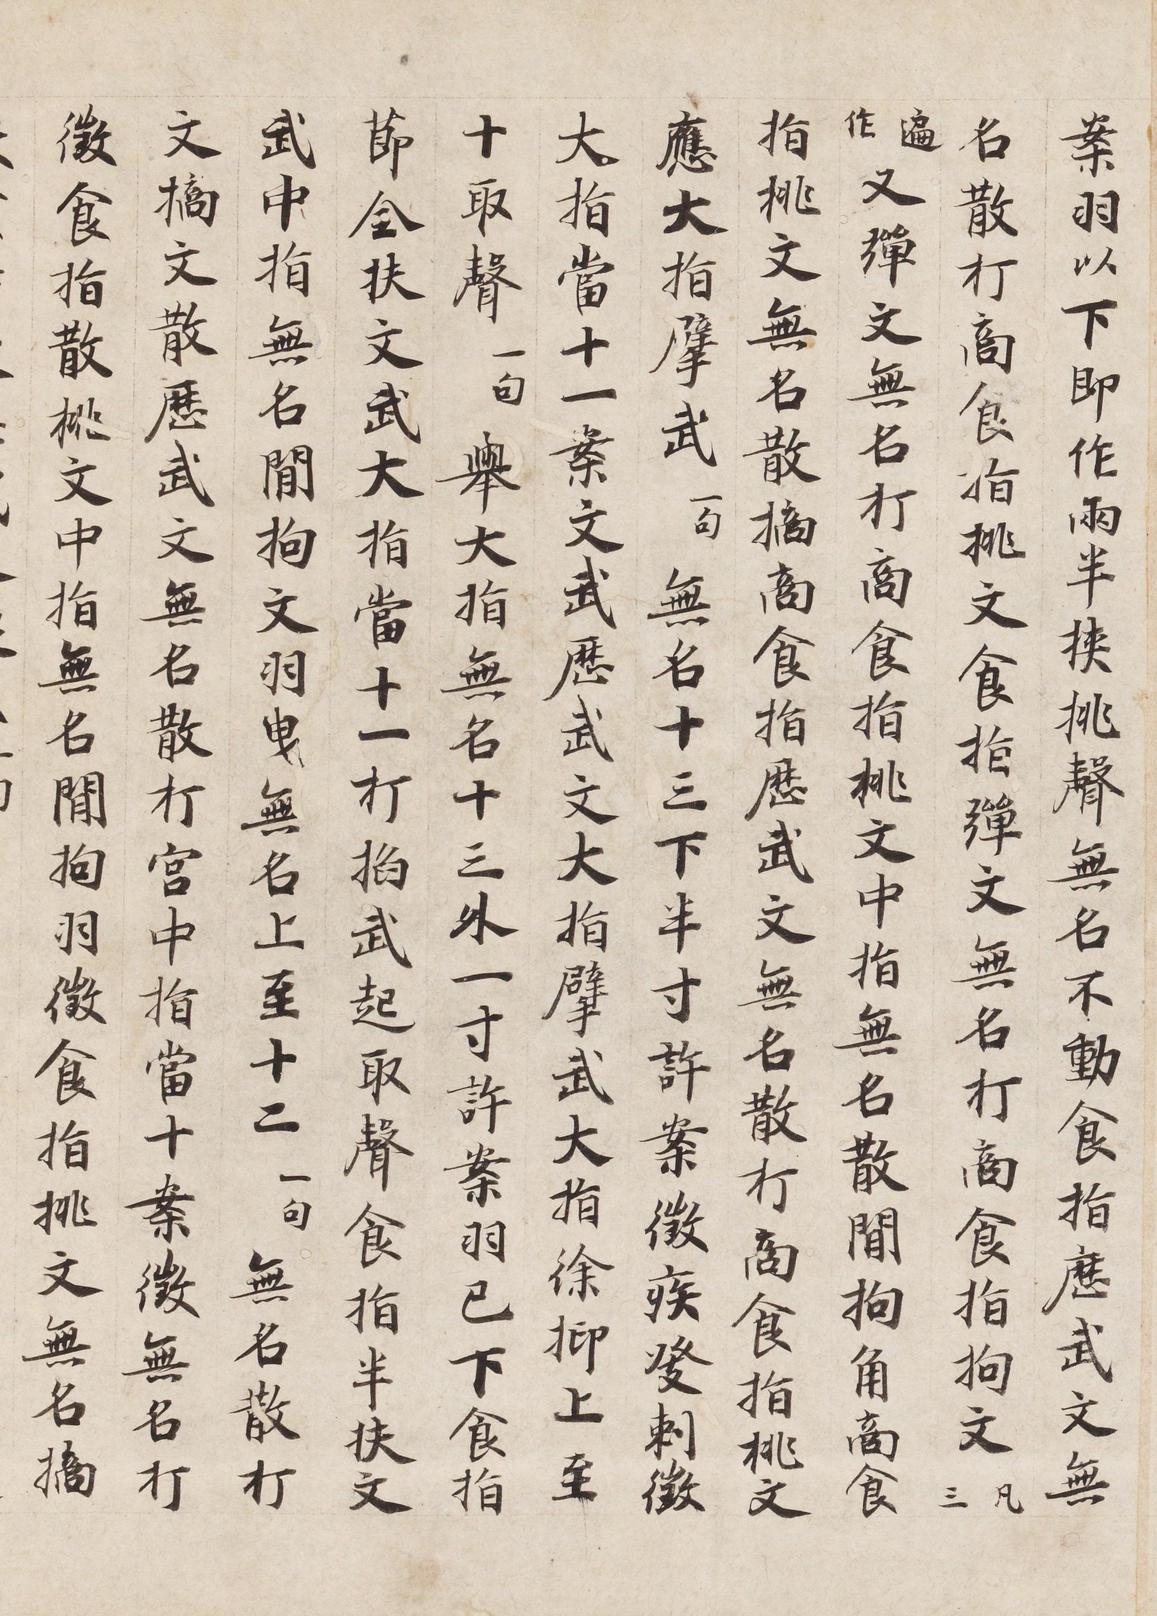 案羽以下即作兩半挾挑聲無名不動食指歷武文無
名散打商食指挑文食指彈文無名打商食指拘文凡三
遍作又彈文無名打商食指挑文中指無名散間拘角商食
指挑文無名散摘商食指歷武文無名散打商食指挑文
應大指擘武一句無名十三下半寸許案徵疾發刺徵
大指當十一案文武歷武文大指擘武大指徐抑上至
十取聲一句舉大指無名十三外一寸許案羽已下食指
節全扶文武大指當十一打掐武起取聲食指半扶文
武中指無名間拘文羽曳無名上至十二一句無名散打
文摘文散歷武文無名散打宮中指當十案徵無名打
徵食指散挑文中指無名間拘羽徵食指挑文無名摘